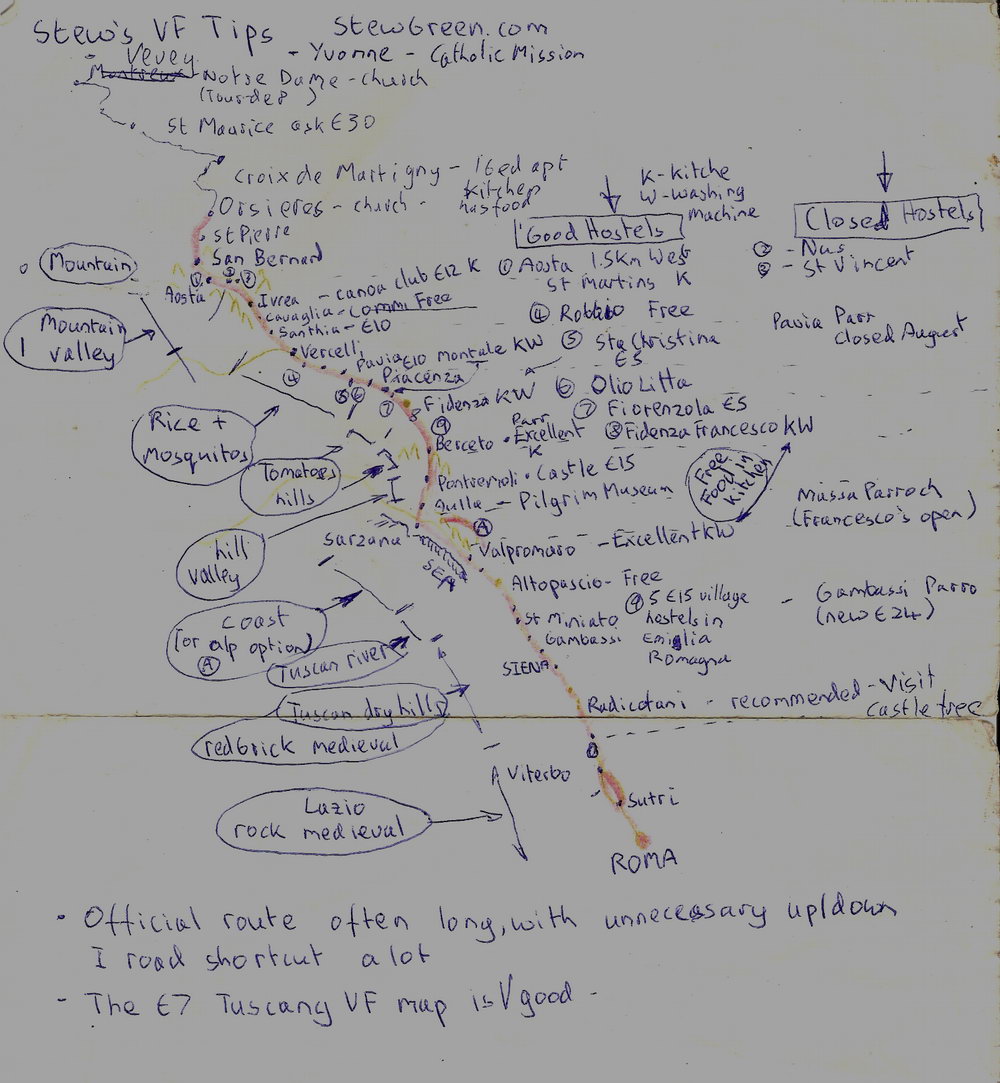 Stew's VF Tips StewGreen.com
Vevey - Yvonne - Catholic Mission
Montreux Notre Dame - church
(Tourde8 )
St Maurice ask €30
Croix de Martigny - 16ed apt
kitchen
Orsieres - church - has food
St Pierre
San Bernard
K - kitche
W - washing
machine
'Good Hostels
Closed Hostels
① Aosta 1.5Km West
St Martins K
② - Nus
- St Vincent
Mountain
Aosta
Ivrea - canoa club €12 K
Cavaglia - Commi Free
Santhia - €10
④ Robbio Free
Pavia Parr
closed August
Mountain
1 valley
Vercelli
Pavia €10 Montale KW
Piacenza
④
⑤⑥
⑦
⑤ Sta Christina
€5
⑥ Olio Litta
8 Fidenza KW
⑦ Fiorenzola €5
⑨
Berceto - Parr
Excellent
K
⑧ Fidenza Francesco KW
Rice +
Mosquitos
Tomatoes
hills
Pontremoli - Castle €15
Free
Food in
Kitchen
Aulla - Pilgrim Museum
Massa Parroch
(Francesco's open)
Ⓐ
hill
valley
Sarzana
SEA
Valpromaro - Excellent KW
Altopascio - Free
⑨ 5 €15 village
hostels in
Emiglia
Romagna
St Miniato
Gambassi
- Gambassi Parro
(new €24)
coast
(or alp option)
Ⓐ
Tuscan river
SIENA
Tuscan dry hills
redbrick medieval
Radicofani - recommended - Visit
castle free
Viterbo
Sutri
Lazio
rock medieval
ROMA
· Official route often long, with unnecessary up/down
I road shortcut a lot
- The €7 Tuscany VF map is V good -